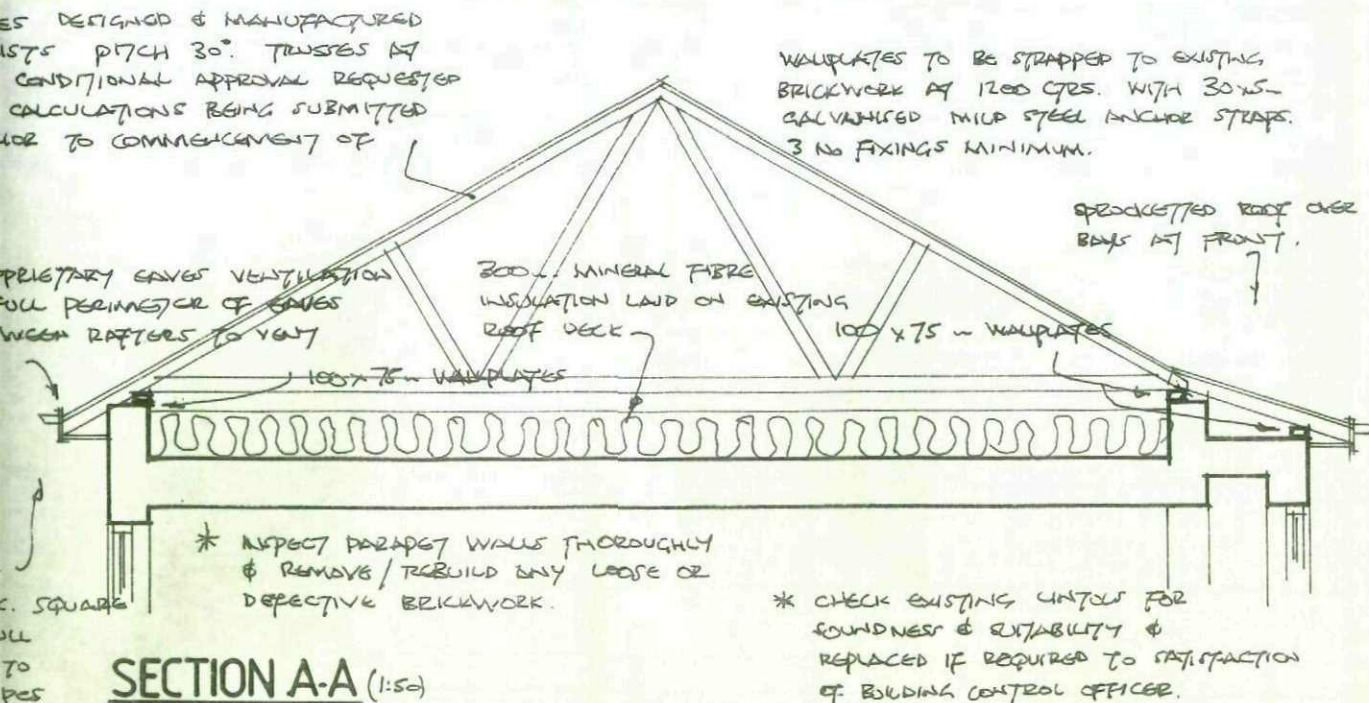 ES DESIGNED & MANUFACTURED
ISTS PITCH 30°. TRUSSES AT
CONDITIONAL APPROVAL REQUESTED
CALCULATIONS BEING SUBMITTED
IOR TO COMMENCEMENT OF
WALLPLATES TO BE STRAPPED TO EXISTING
BRICKWORK AT 1200 CTRS. WITH 30x5
GALVANISED MILD STEEL ANCHOR STRAPS.
3 No FIXINGS MINIMUM.
SPROCKETTED ROOF OVER
BAYS AT FRONT.
OPRIETARY EAVES VENTILATION
FULL PERIMETER OF EAVES
WEEN RAFTERS TO VENT
300 MINERAL FIBRE
INSULATION LAID ON EXISTING
ROOF DECK
100 x 75 WALLPLATES
100 x 75 WALLPLATES
* INSPECT PARAPET WALLS THOROUGHLY
& REMOVE / REBUILD ANY LOOSE OR
DEFECTIVE BRICKWORK.
C. SQUARE
ULL
TO
PES
* CHECK EXISTING LINTOLS FOR
SOUNDNESS & SUITABILITY &
REPLACED IF REQUIRED TO SATISFACTION
OF BUILDING CONTROL OFFICER.
SECTION A-A (1:50)